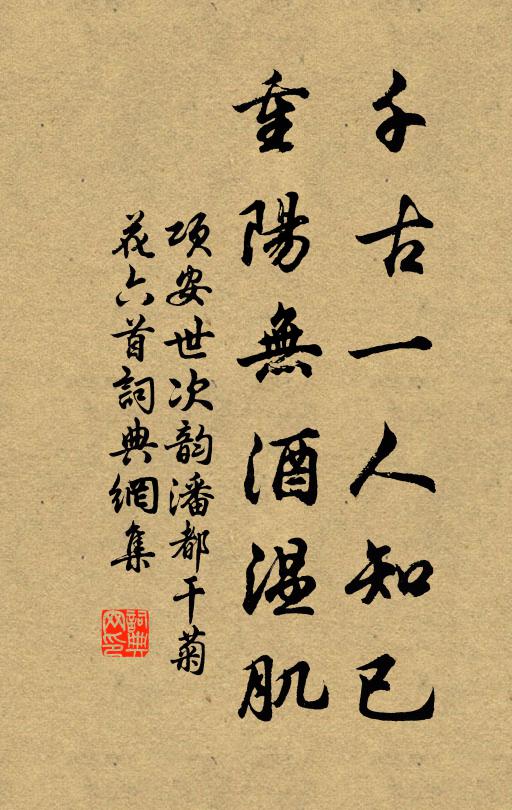 千古一人知已
重陽無酒温肌
项安世次韵潘都干菊
花六首詞典網集
詞典
网印